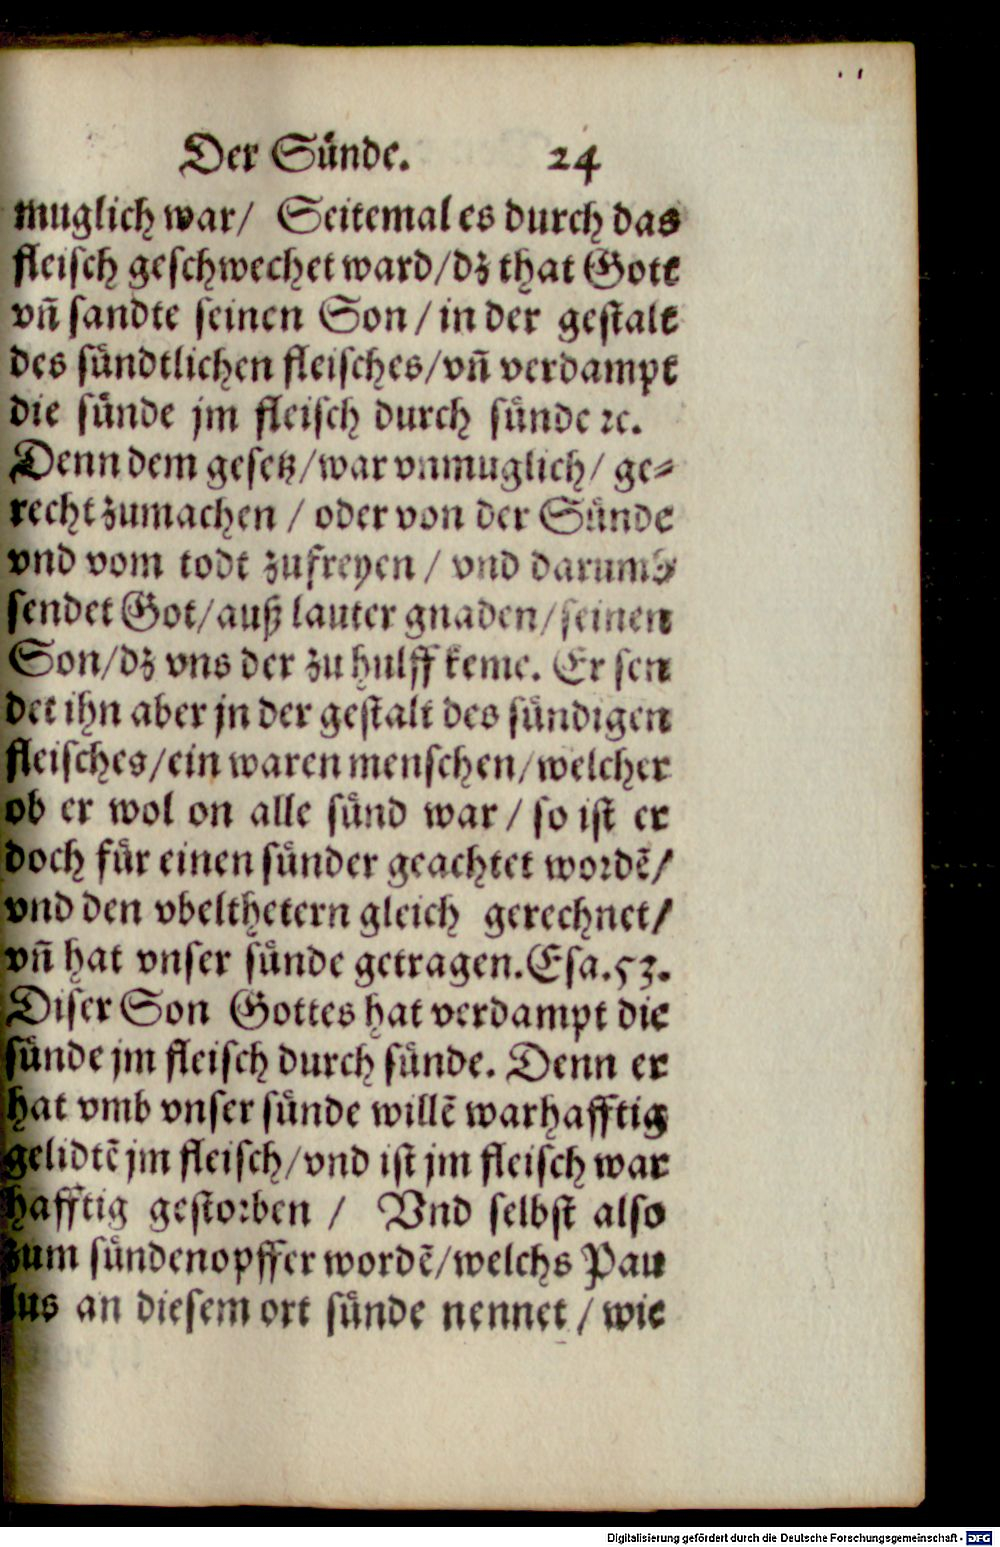 Der Sünde. 24
muglich war/ Seitemal es durch das
fleisch geschwechet ward/dz that Gott
vñ sandte seinen Son/in der gestalt
des sündtlichen fleisches/vñ verdampt
die sünde jm fleisch durch sünde ꝛc.
Denn dem gesetz/war vnmuglich/ ge⸗
recht zumachen / oder von der Sünde
vnd vom todt zufreyen / vnd darumb
sendet Got/auß lauter gnaden/seinen
Son/dz vns der zu hulff keme. Er sen
det ihn aber jn der gestalt des sündigen
fleisches/ein waren menschen/welcher
ob er wol on alle sünd war / so ist er
doch für einen sünder geachtet wordẽ/
vnd den vbelthetern gleich gerechnet/
vñ hat vnser sünde getragen.Esa.53.
Diser Son Gottes hat verdampt die
sünde jm fleisch durch sünde. Denn er
hat vmb vnser sünde willẽ warhafftig
gelidtẽ jm fleisch/vnd ist jm fleisch war
hafftig gestorben / Vnd selbst also
zum sündenopffer wordẽ/welchs Pau
lus an diesem ort sünde nennet / wie
Digitalisierung gefördert durch die Deutsche Forschungsgemeinschaft - DFG